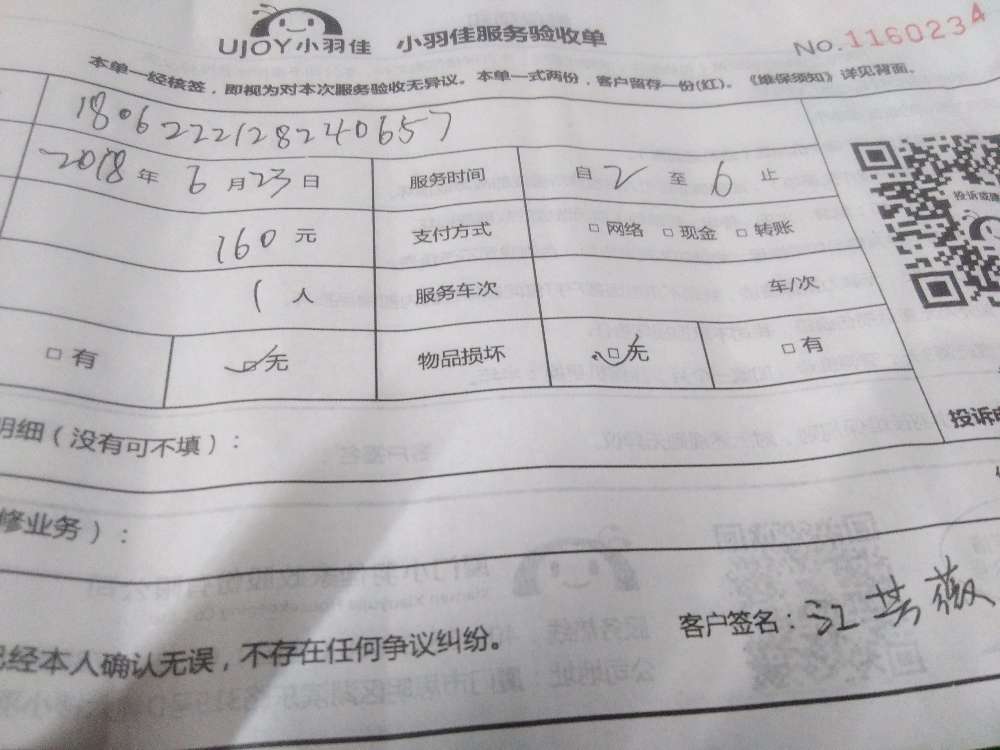 UJOY小羽佳 小羽佳服务验收单 No.1160234
本单一经核签，即视为对本次服务验收无异议。本单一式两份，客户留存一份(红)。《维保须知》详见背面。
1806222128240657
2018年6月23日 服务时间 自2至6止
160元 支付方式 □网络 □现金 □转账
1人 服务车次 车/次
□有 □无 物品损坏 □无 □有
明细（没有可不填）：
投诉
修业务）：
客户签名：江
已经本人确认无误，不存在任何争议纠纷。